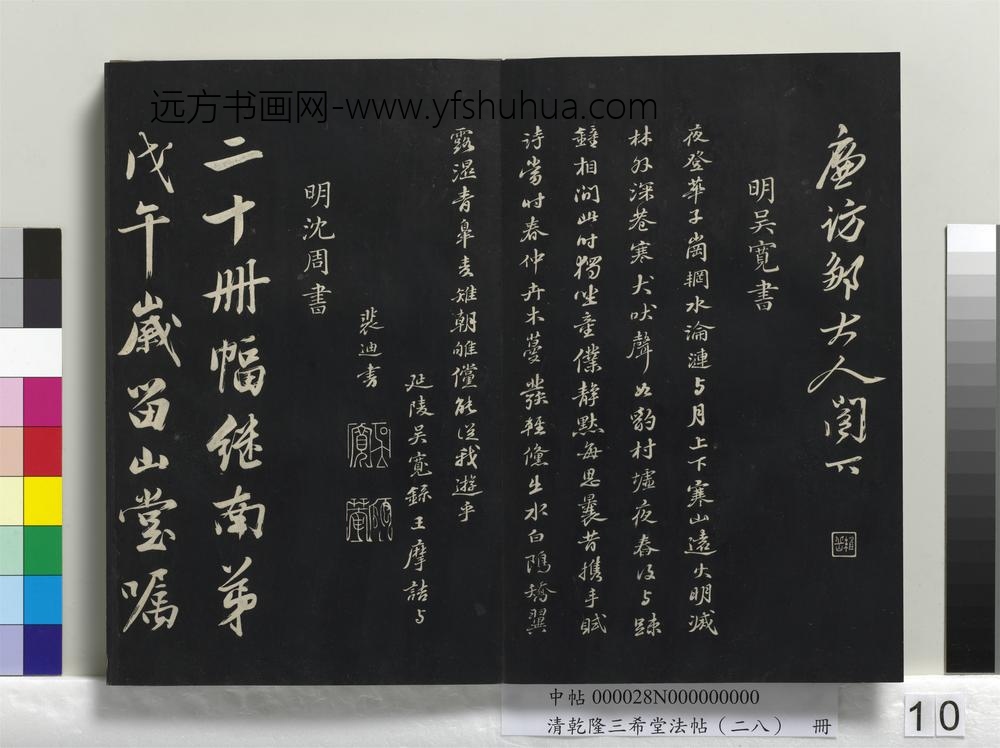 远方书画网-www.yfshuhua.com
廉访邹大人阁下
明吳寬書
夜登華子崗輞水淪漣与月上下寒山遠火明滅
林外深巷寒犬吠聲如豹村墟夜舂復与踈
鐘相间此时獨坐童僕静默每思曩昔攜手賦
诗當时春仲卉木蔓發輕鯈出水白鷗矯翼
露濕青皋麦雉朝雊儻能從我遊乎
延陵吳寬錄王摩詰与
裴迪書
明沈周書
二十冊幅继南弟
戊午歲留山堂嘱
中帖 000028N000000000
清乾隆三希堂法帖（二八） 冊
10